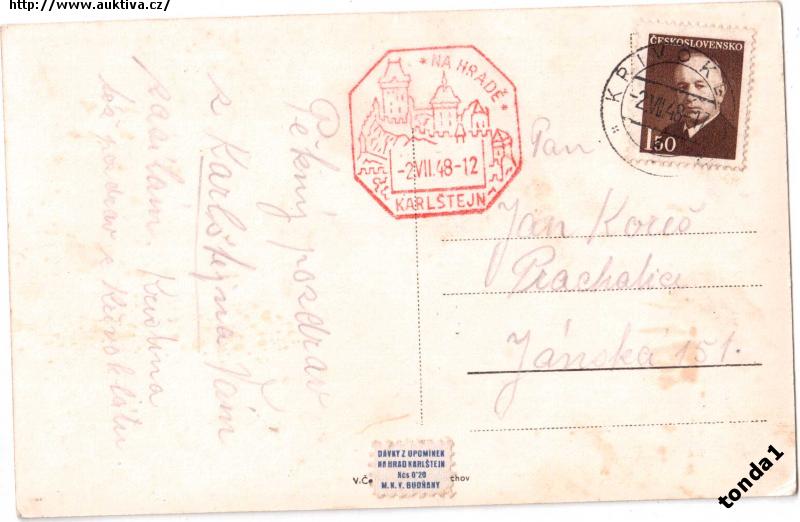 http://www.auktiva.cz/
Pěkný pozdrav
z Karlštejna Vám
zasílám. Kristina
též pozdrav z Křivoklátu
* NA HRADĚ *
-2.VII.48-12
KARLŠTEJN
ČESKOSLOVENSKO
1.50
KŘIVOK
-2.VII.48-
Pan
Jan Koreš
Prachatice
Jánská 151.
DÁVKY Z UPOMÍNEK
NA HRAD KARLŠTEJN
Kčs 0'20
M.N.V. BUDŇANY
V.Če
chov
tonda1